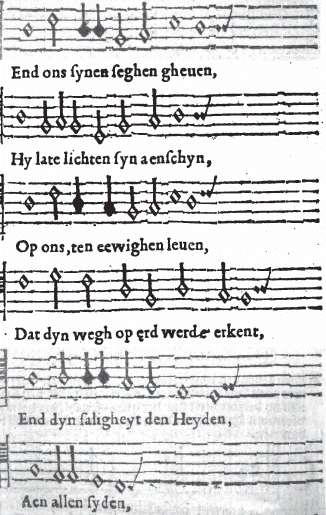 End ons ſynen ſeghen gheuen,
Hy late lichten ſyn aenſchyn,
Op ons, ten eewighen leuen,
Dat dyn wegh op ęrd werde erkent,
End dyn ſaligheyt den Heyden,
Aen allen ſyden,